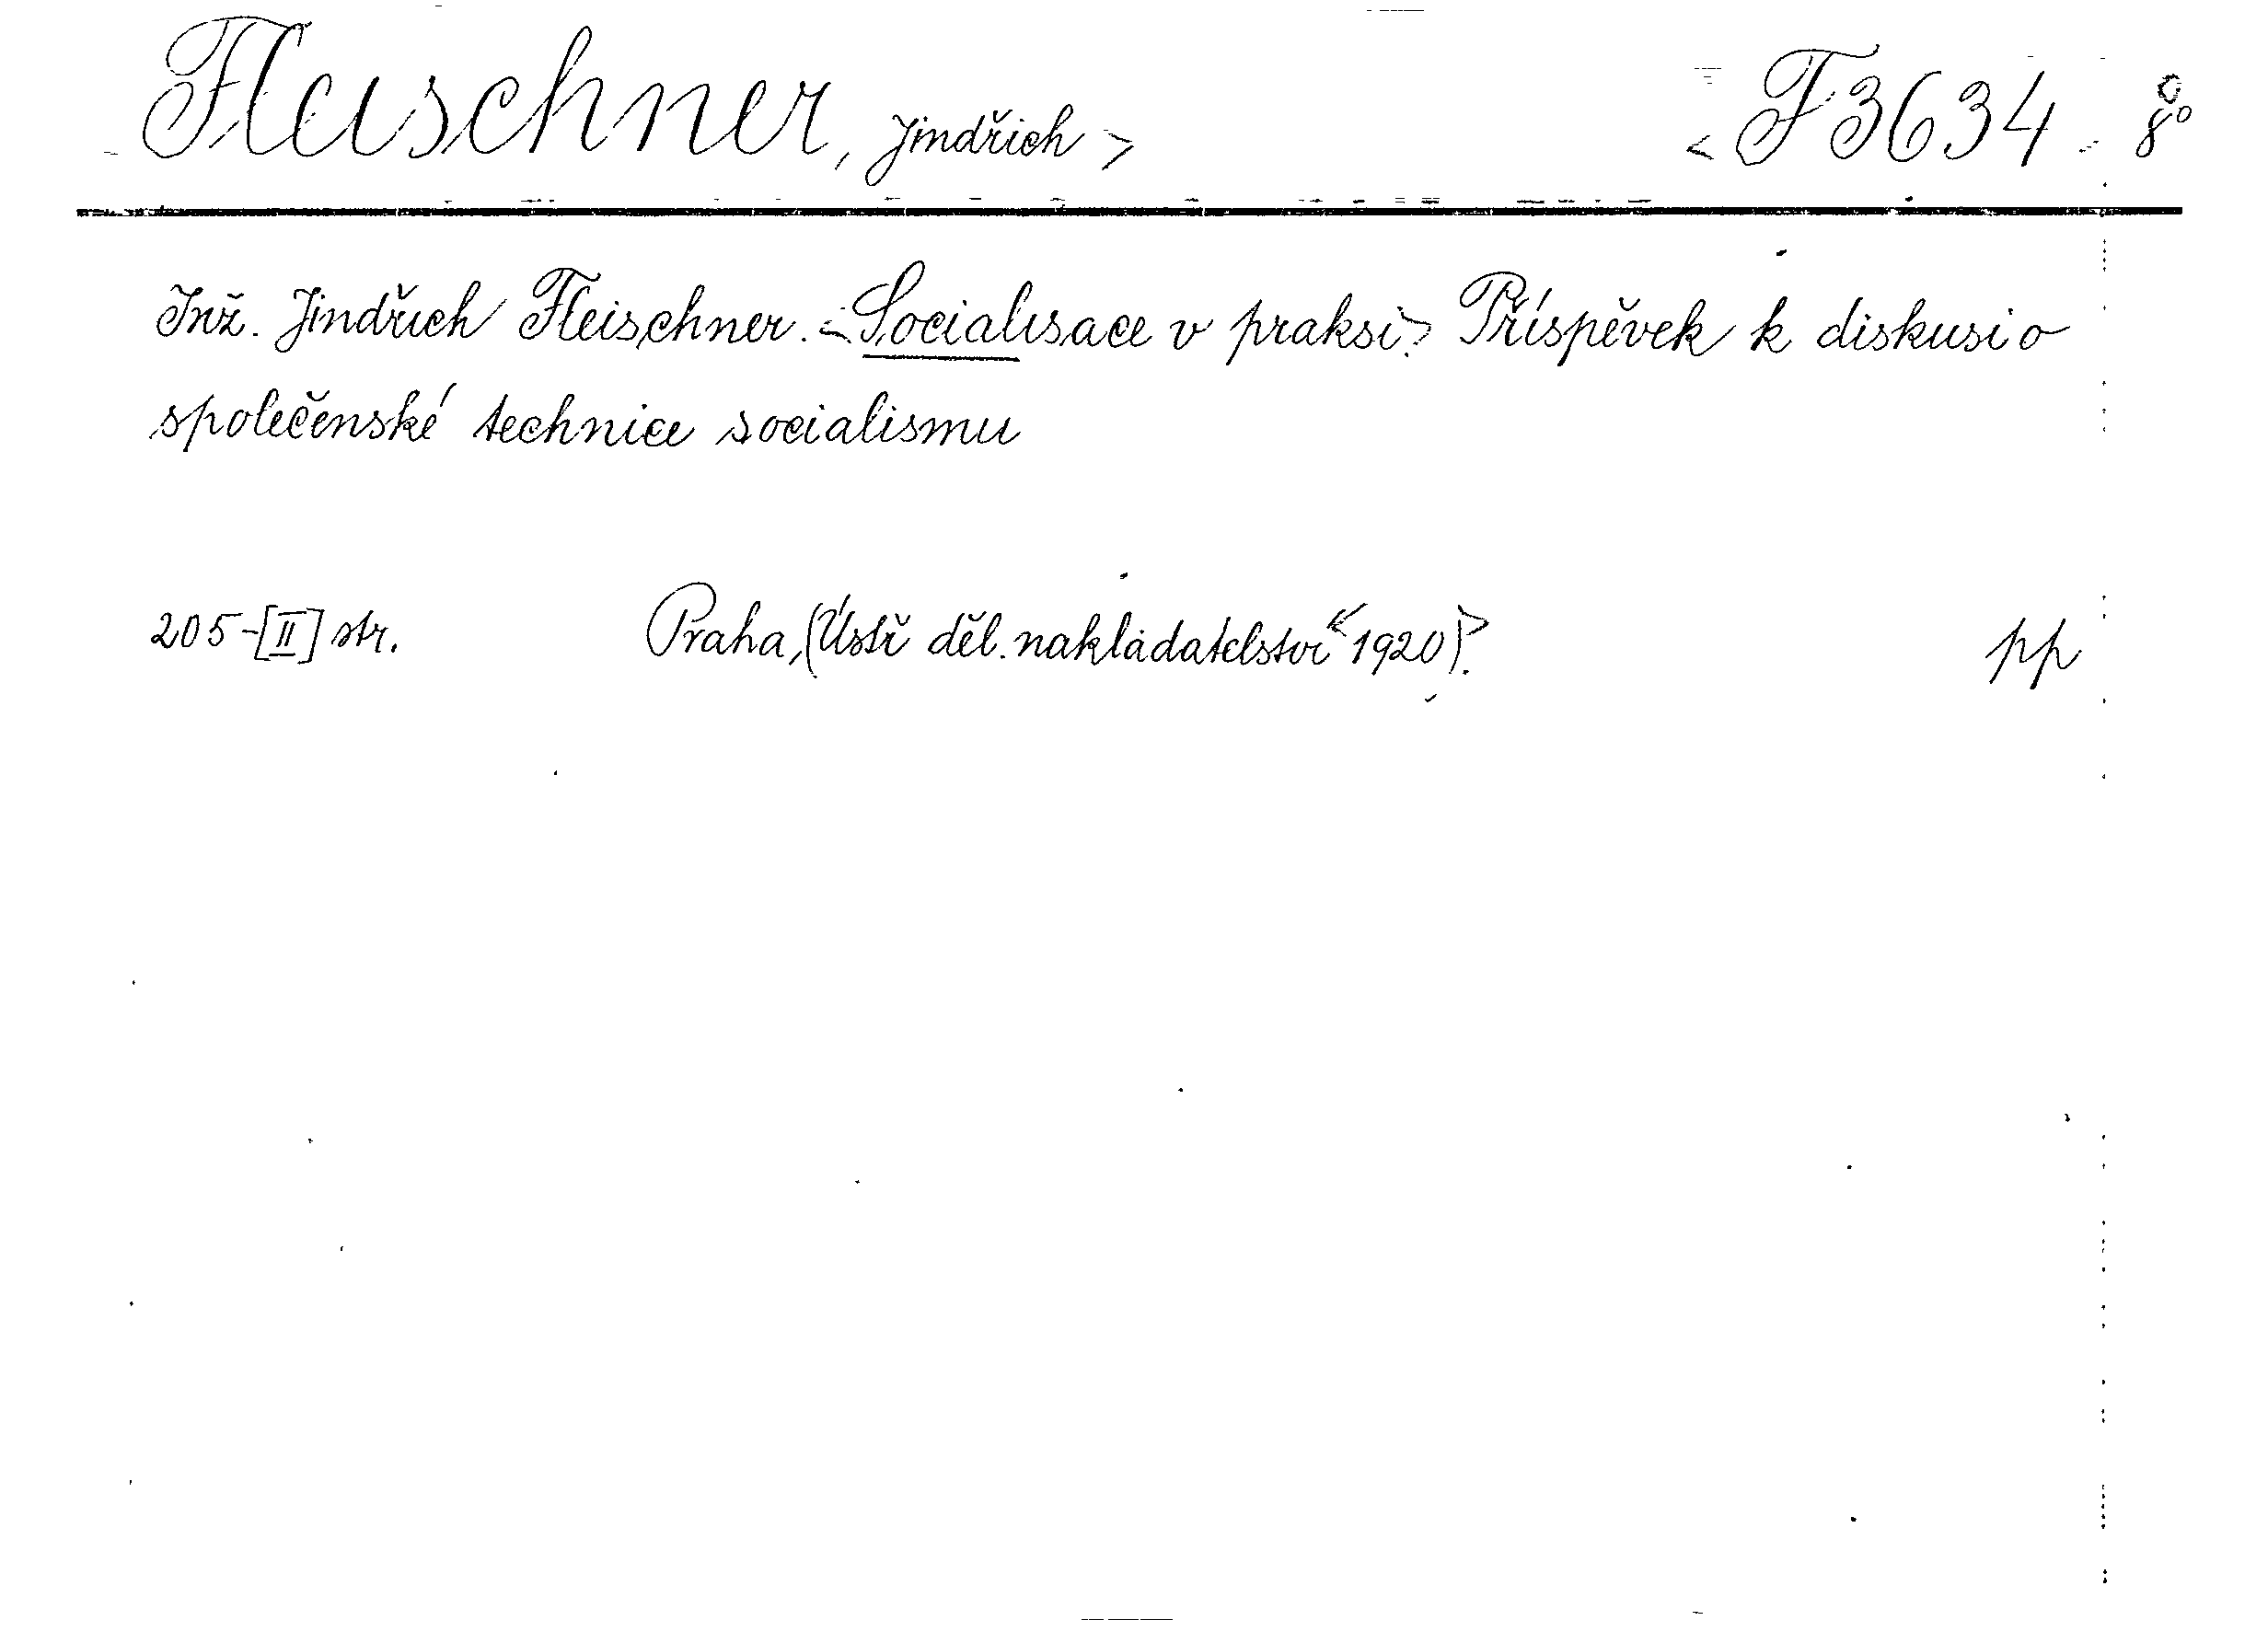 Fleischner, Jindřich > < F 3634 8°
Inž. Jindřich Fleischner. <Socialisace v praksi.> Příspěvek k diskusi o
společenské technice socialismu
205-[II] str. Praha, (Ústř děl. nakladatelství < 1920).>  pp